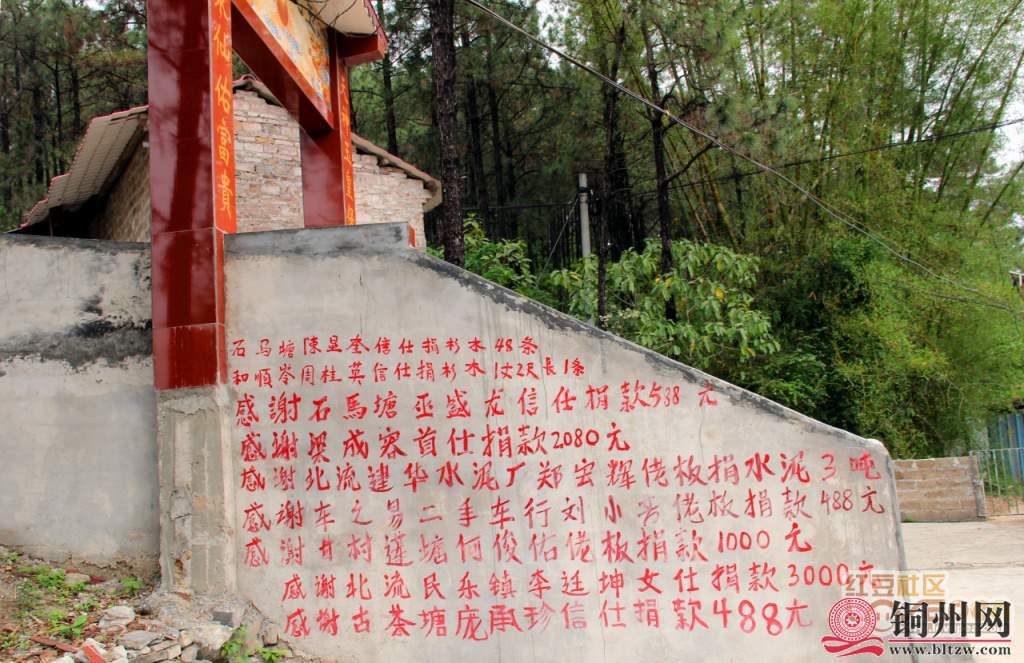 佑富貴
石马塘陳显奎信仕捐杉木48条
和順岺周桂英信仕捐杉木1丈2尺長1条
感謝石馬塘巫盛龙信仕捐款588元
感谢梁成寮首仕捐款2080元
感谢北流建华水泥厂郑宏辉佬板捐水泥3吨
感謝车之易二手车行刘小佬板捐款488元
感謝井村莲塘何俊佑佬板捐款1000元
感谢北流民乐镇李廷坤女仕捐款3000元
感谢古荅塘庞承珍信仕捐款488元
红豆社区
铜州网
www.bltzw.com